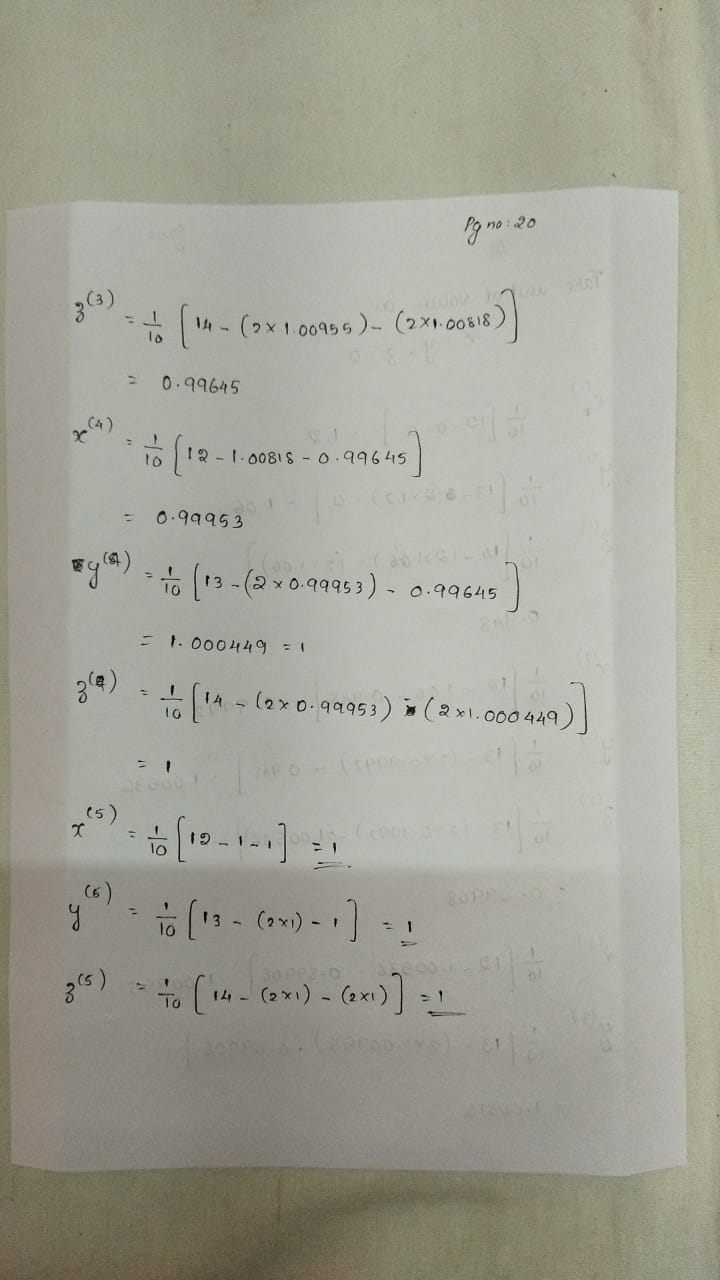 Pg no: 20
z^(3) = 1/10 [14 - (2 × 1.00955) - (2×1.00818)]
= 0.99645
x^(4) = 1/10 [12 - 1.00818 - 0.99645]
= 0.99953
y^(4) = 1/10 [13 - (2 × 0.99953) - 0.99645]
= 1.000449 = 1
z^(4) = 1/10 [14 - (2× 0.99953) - (2×1.000449)]
= 1
x^(5) = 1/10 [12 - 1 - 1] = 1
y^(5) = 1/10 [13 - (2×1) - 1] = 1
z^(5) = 1/10 [14 - (2×1) - (2×1)] = 1